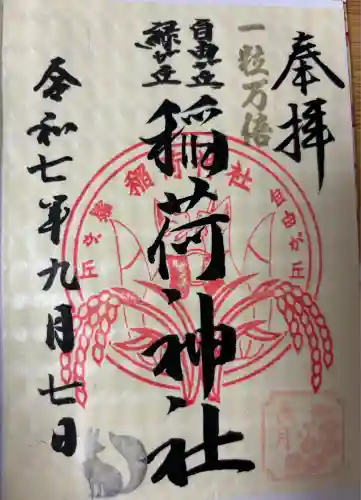 奉拝
一粒万倍
自由が丘
緑が丘
稲荷神社
令和七年九月七日
稲荷神社
自由が丘
緑が丘
月